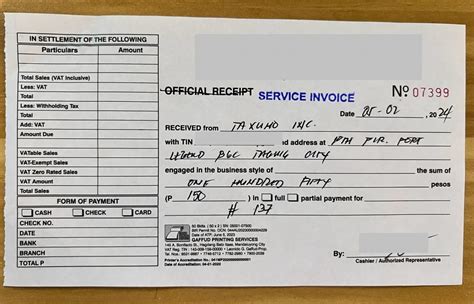 IN SETTLEMENT OF THE FOLLOWING
Particulars Amount
Total Sales (VAT Inclusive)
Less: VAT
Total
Less: Withholding Tax
Total
Add: VAT
Amount Due
VATable Sales
VAT-Exempt Sales
VAT Zero Rated Sales
VAT Amount
Total Sales
FORM OF PAYMENT
CASH CHECK CARD
CHECK NO.
DATE
BANK
BRANCH
TOTAL P
OFFICIAL RECEIPT SERVICE INVOICE Nº 07399
Date 05-02, 2024
RECEIVED from TAXUMO INC.
with TIN and address at
BGC TAGUIG CITY
engaged in the business style of the sum of
ONE HUNDRED FIFTY pesos
(P 150 ) in full partial payment for
# 137
GAFFUD PRINTING SERVICES
By:
Cashier / Authorized Representative